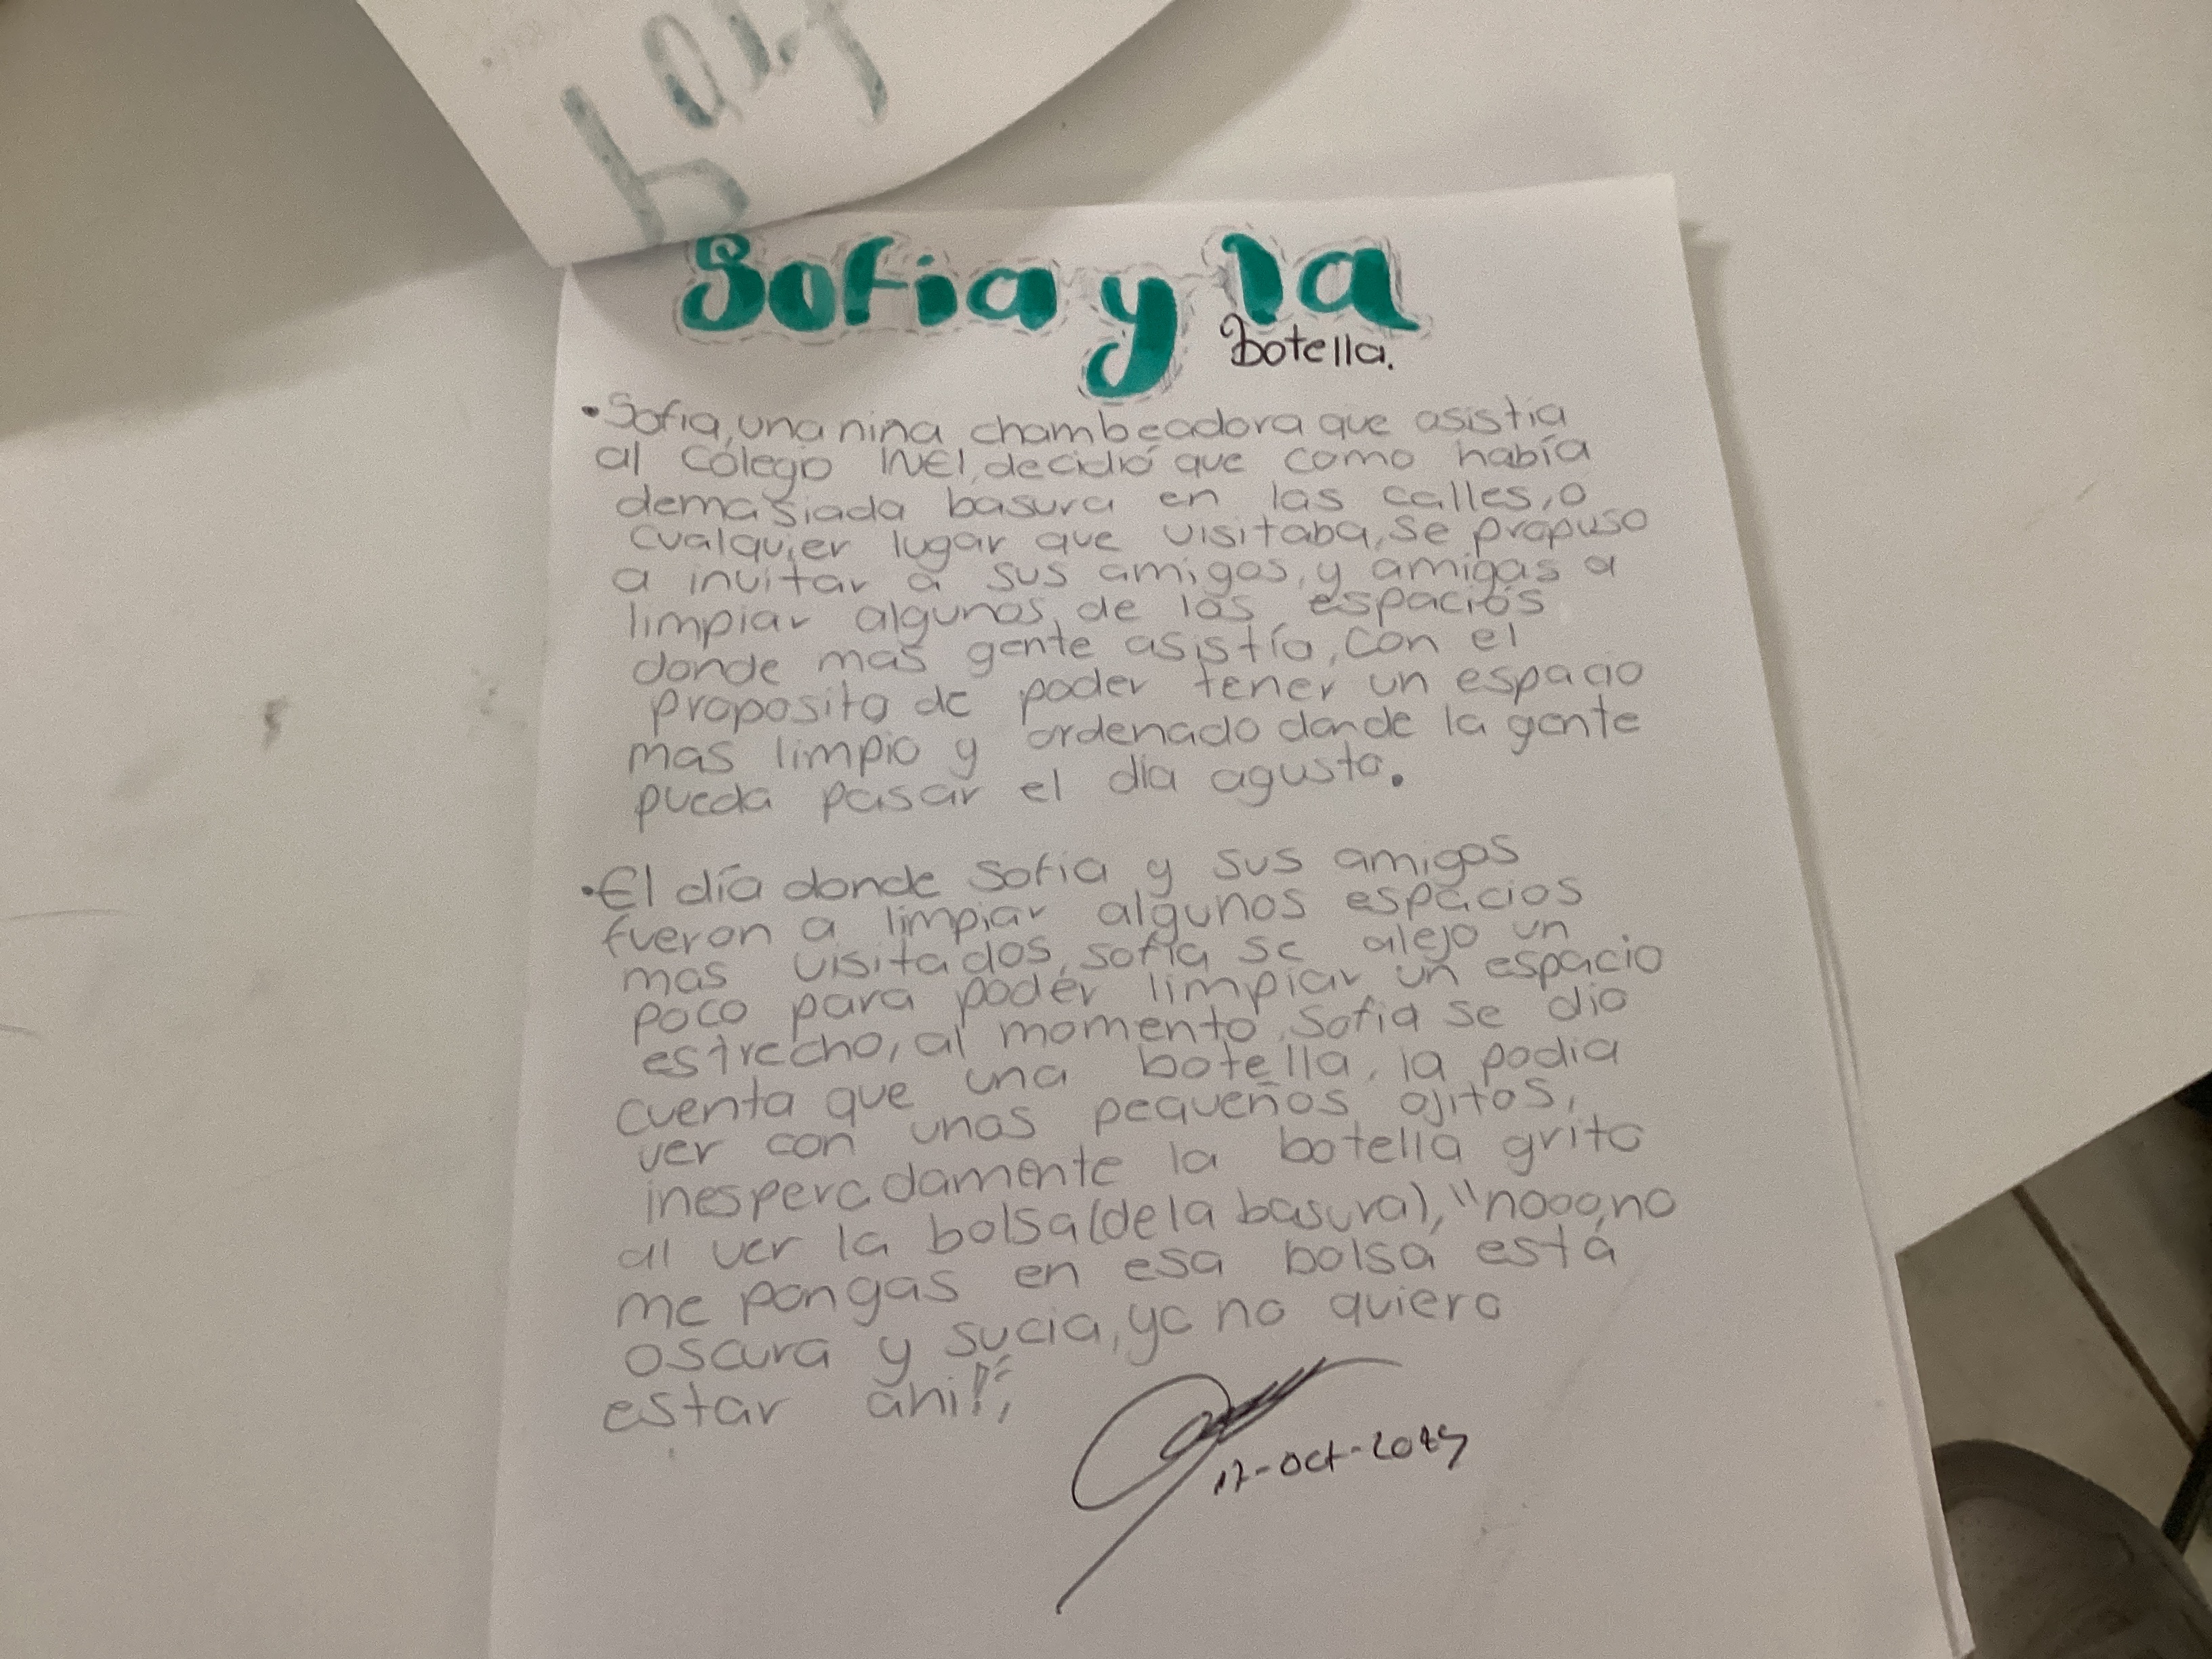 Sofia y la
botella.
• Sofia, una nina chambeadora que asistia
al Colegio INEI, decidió que como había
demasiada basura en las calles, o
cualquier lugar que visitaba, se propuso
a invitar a sus amigos, y amigas a
limpiar algunos de los espacios
donde mas gente asistía, con el
proposito de poder tener un espacio
mas limpio y ordenado donde la gente
pueda pasar el día agusto.
• El día donde Sofia y sus amigos
fueron a limpiar algunos espacios
mas visitados, sofia se alejo un
poco para poder limpiar un espacio
estrecho, al momento, Sofia se dio
cuenta que una botella, la podia
ver con unos pequeños ojitos,
inesperadamente la botella grito
al ver la bolsa (de la basura), "nooo, no
me pongas en esa bolsa está
oscura y sucia, ya no quiero
estar ahi!",